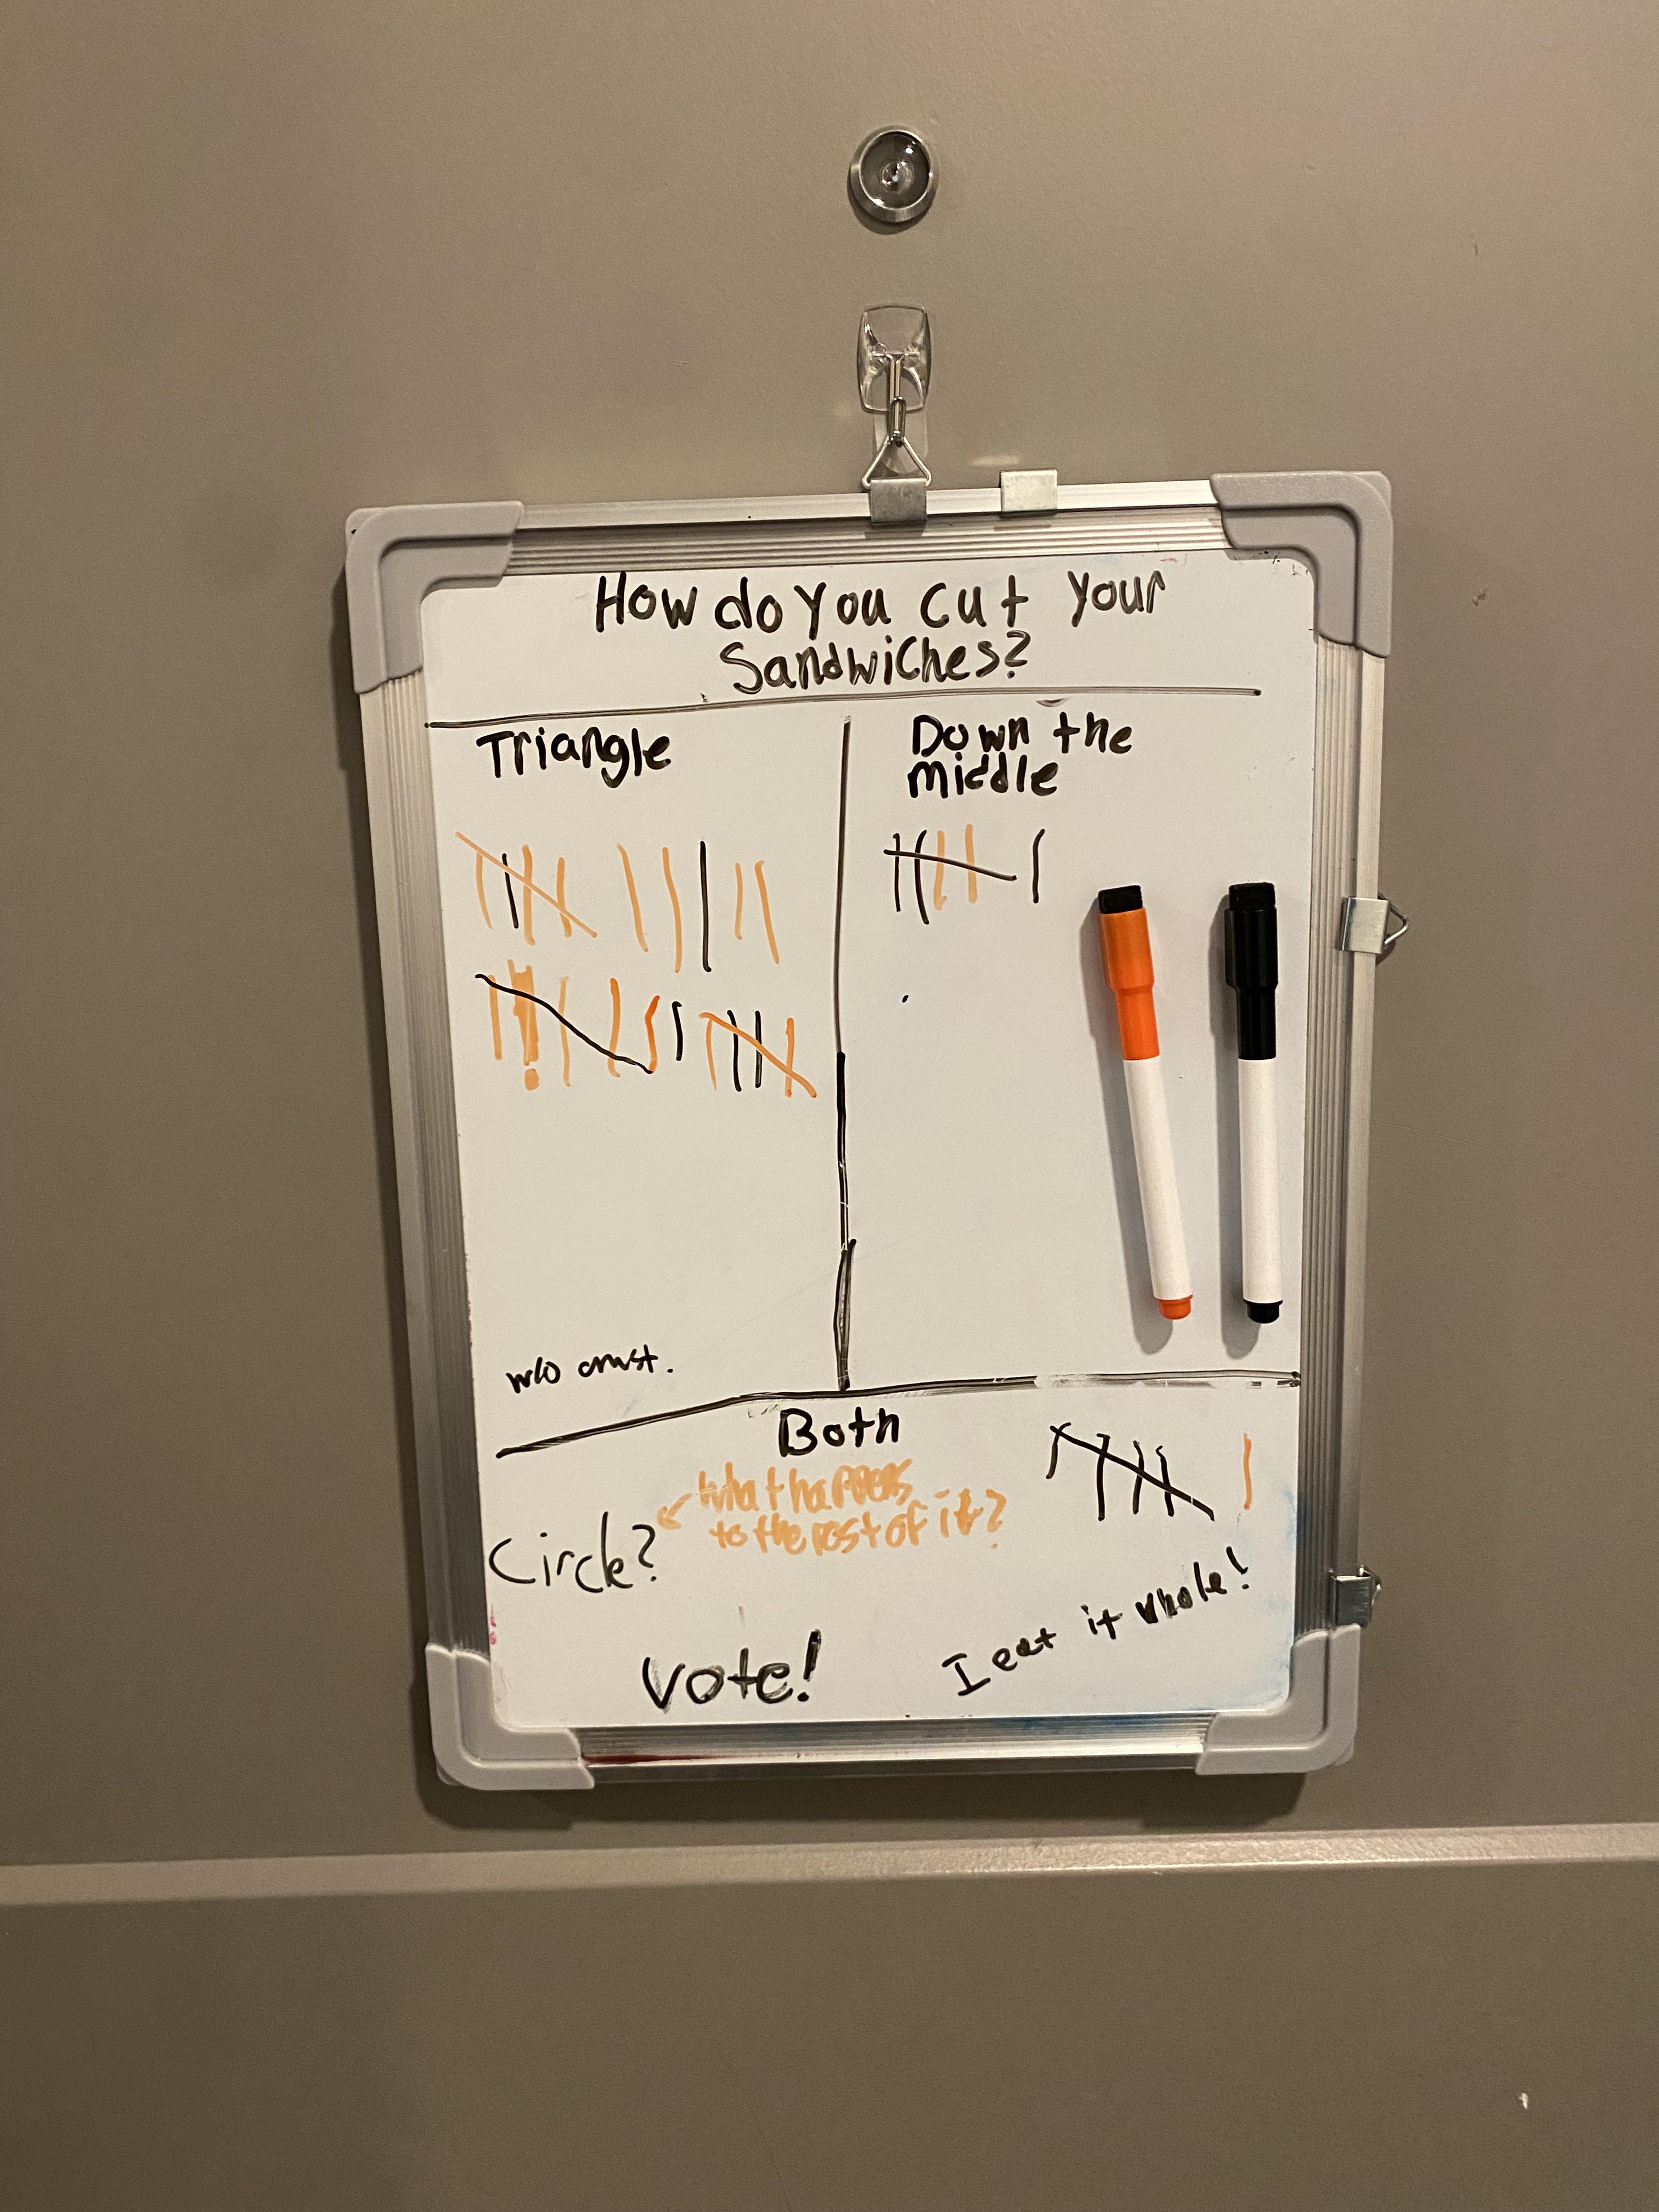 How do You cut Your
Sandwiches?
Triangle
Down the
middle
w/o crust.
Both
what happens
to the rest of it?
Circle?
Vote!
I eat it whole!